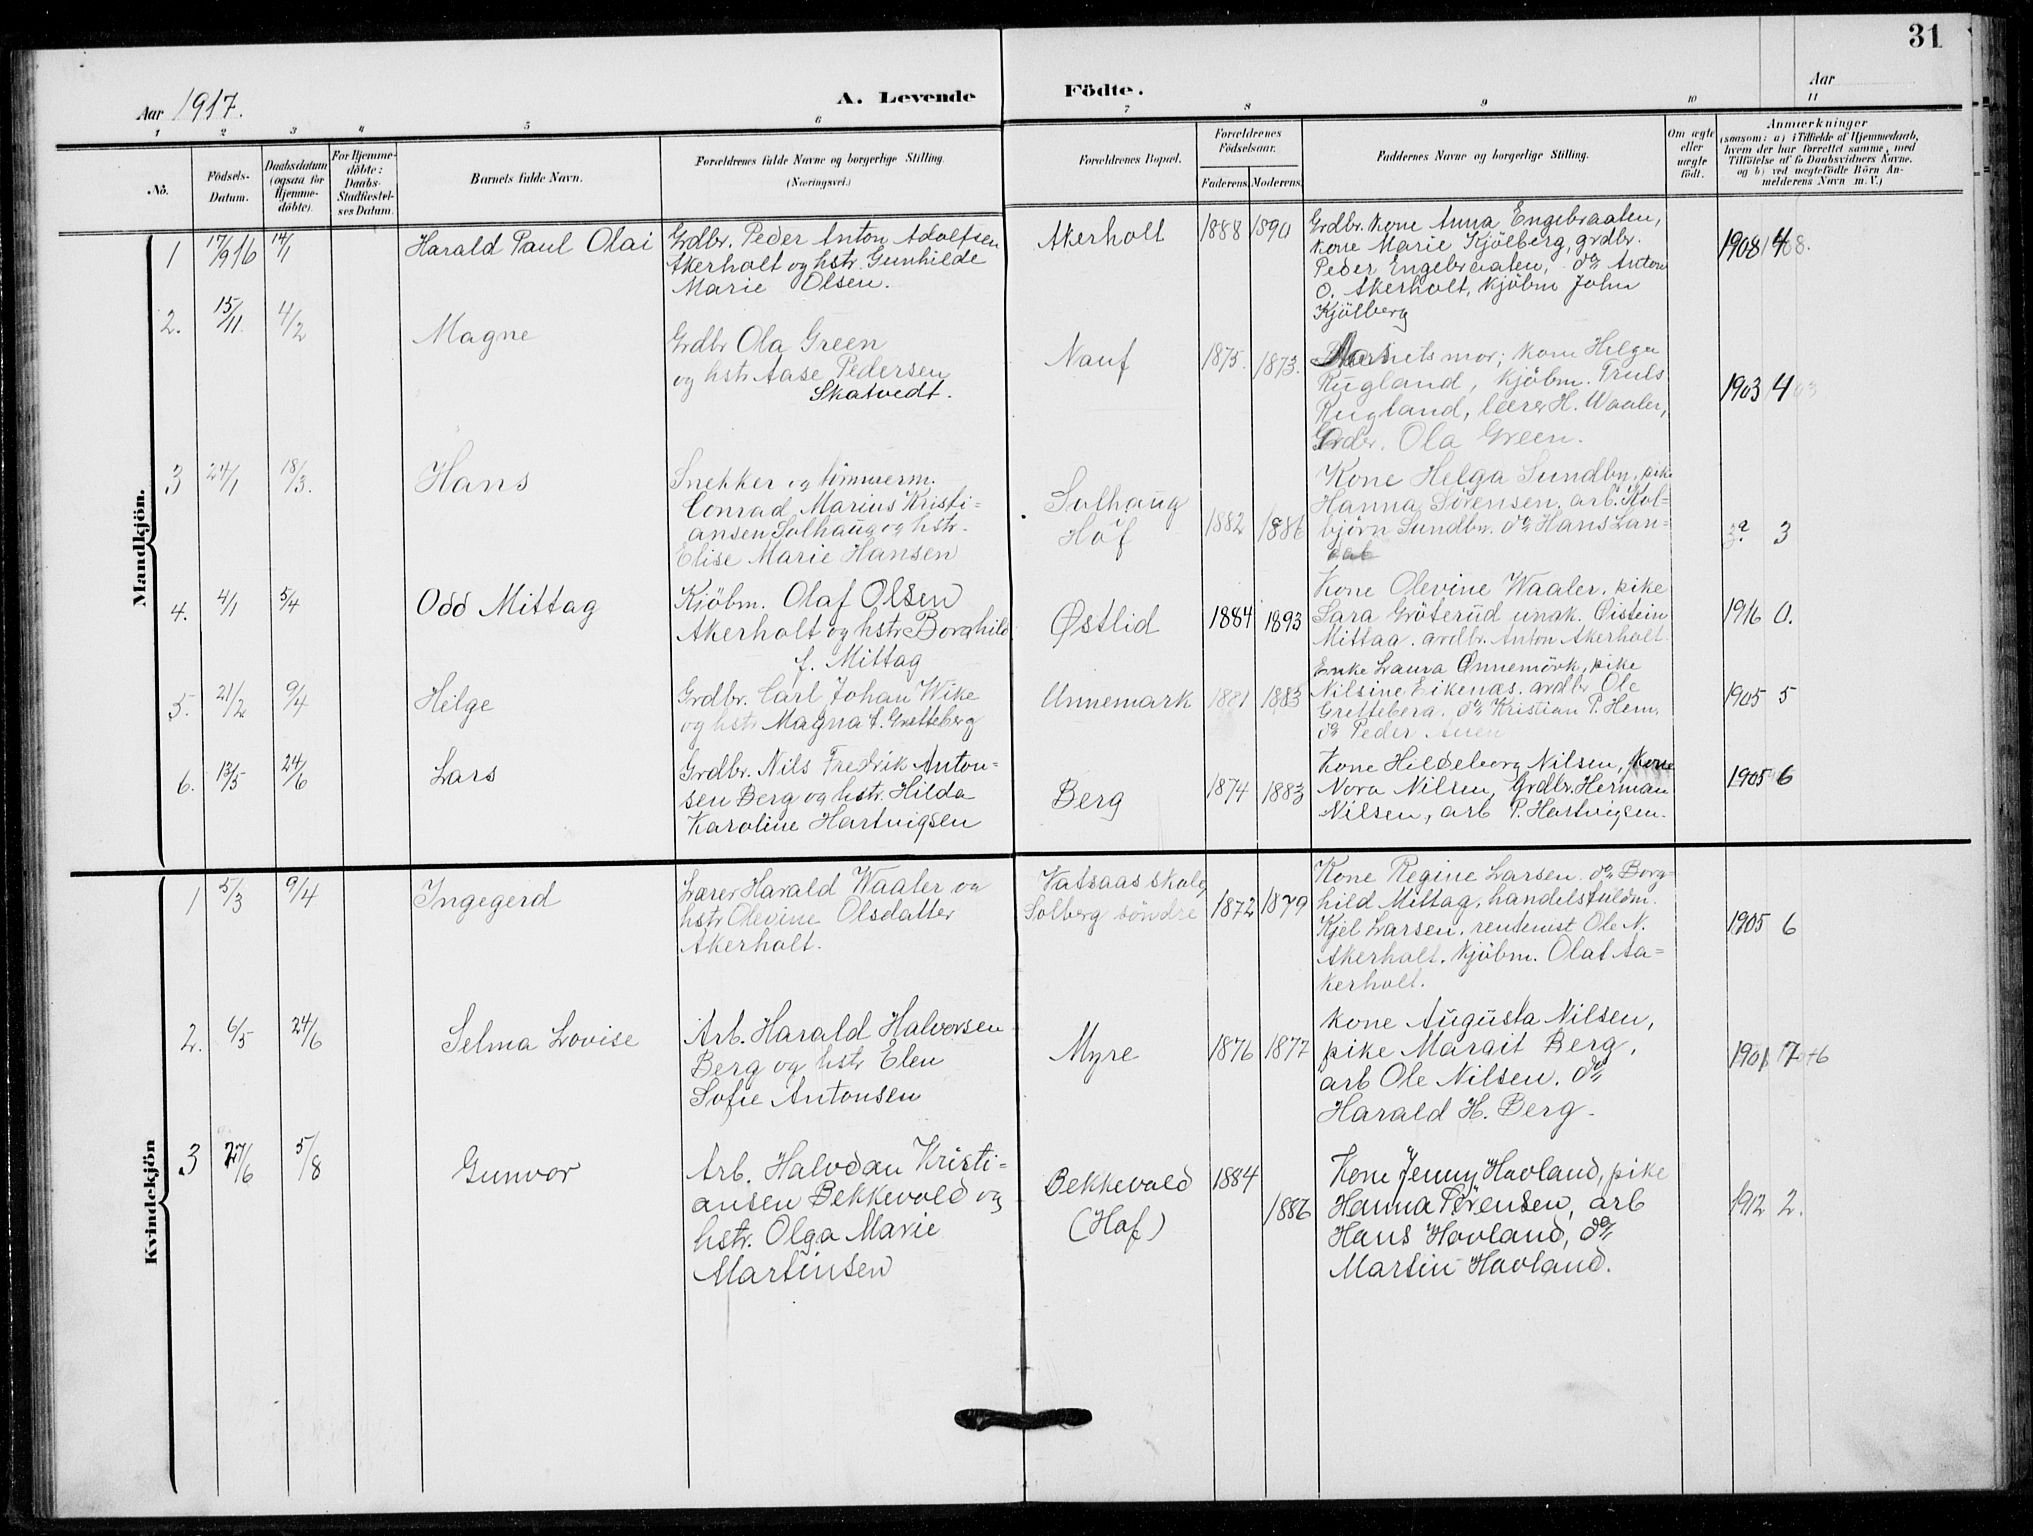 31
Aar 1917.
A. Levende Födte.
Aar
1 2 3 4 5 6 7 8 9 10 11
No.
Födsels-
Datum.
Daabsdatum
(ogsaa for
Hjemme-
döbte).
For Hjemme-
döbte:
Daabs-
Stadfæstel-
ses Datum.
Barnets fulde Navn.
Forældrenes fulde Navne og borgerlige Stilling.
(Næringsvei.)
Forældrenes Bopæl.
Forældrenes
Födselsaar.
Faderens. Moderens.
Faddernes Navne og borgerlige Stilling.
Om ægte
eller
uægte
født.
Anmærkninger
(saasom: a) i Tilfælde af Hjemmedaab,
hvem der har forrettet samme, med
Tilföielse af to Daabsvidners Navne.
og b) ved uægtefödte Börn An-
melderens Navn m. V.)
Mandkjön.
1 17/9 16 14/1 Harald Paul Olai
Grdbr. Peder Anton Adolfsen
Akerholt og hstr. Gunhilde
Marie Olsen.
Akerholt 1888 1890
Grdbr. Kone Anna Engebraaten,
Kone Marie Kjölberg, grdbr.
Peder Engebraaten, do Anton
O. Akerholt, kjöbm John
Kjölberg
1908 4
2. 15/11. 4/2 Magne
Grdbr Ola Green
og hstr Aase Pedersen
Skatvedt.
Nauf 1875. 1873.
Barnets mor; kone Helga
Rugland, kjöbm. Truls
Rugland, lærer H. Waaler,
Grdbr. Ola Green.
1903 4
3 24/1 18/3. Hans
Snekker og tömmerm.
Conrad Marius Kristi-
ansen Solhaug og hstr.
Elise Marie Hansen
Solhaug
Hof
1882 1886
Kone Helga Sundby, pike
Hanna Sörensen, arb. Kol-
björn Sundby. do Hans Lan-
3
4. 4/1 5/4 Odd Mittag
Kjöbm. Olaf Olsen
Akerholt og hstr Borghild
f. Mittag
Østlid 1884 1893
Kone Olevine Waaler, pike
Sara Gröterud, unak. Öistein
Mittag, grdbr. Anton Akerholt
1916 0.
5. 21/2 9/4 Helge
Grdbr. Carl Johan Wike
og hstr Magna f. Gretteberg
Unnemark 1881 1883
Enke Laura Önnemörk, pike
Nilsine Eikenæs, grdbr Ole
Gretteberg, do Kristian P. Hem,
do Peder Auen
1905 5
6. 13/5 24/6 Lars
Grdbr. Nils Fredrik Anton-
sen Berg og hstr. Hilda
Karoline Hartvigsen
Berg 1874 1883
Kone Hildeborg Nilsen, Kone
Nora Nilsen, Grdbr. Herman
Nilsen, arb P. Hartvigsen.
1905 6
Kvindekjön
1 5/3 9/4 Ingegerd
Lærer Harald Waaler og
hstr Olevine Olsdatter
Akerholt.
Vatsaas skole,
Solberg söndre
1872 1879
Kone Regine Larsen. do Borg-
hild Mittag, handelsfuldm.
Kjel Larsen, rentenist Ole N.
Akerholt, kjöbm. Olaf Aa-
kerholt.
1905 6
2. 6/5 24/6 Selma Lovise
Arb. Harald Halvorsen
Berg og hstr Elen
Sofie Antonsen
Myre 1876 1877
Kone Augusta Nilsen,
pike Margit Berg,
arb Ole Nilsen, do
Harald H. Berg.
1901 7
3 27/6 5/8 Gunvor
Arb. Halvdan Kristi-
ansen Bekkevold og
hstr. Olga Marie
Martinsen
Bekkevold
(Hof)
1884 1886
Kone Jenny Hovland, pike
Hanna Sörensen, arb
Hans Hovland, do
Martin Hovland.
1912 2.